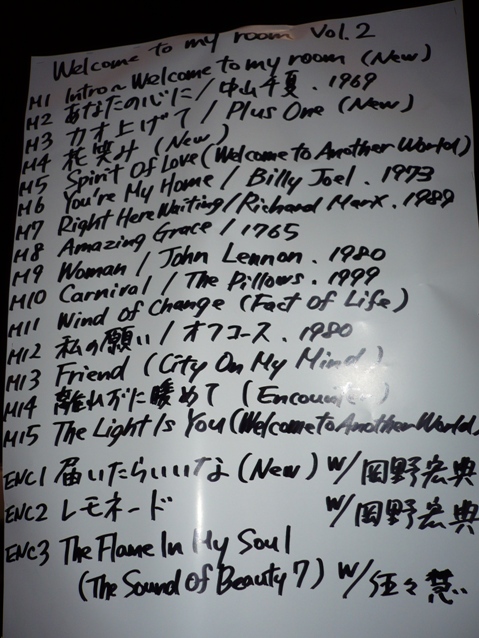 Welcome to my room Vol.2
M1 Intro~Welcome to my room (New)
M2 あなたの心に/中山千夏.1969
M3 カオ上げて/Plus One (New)
M4 花笑み (New)
M5 Spirit Of Love (Welcome to Another World)
M6 You're My Home/Billy Joel.1973
M7 Right Here Waiting/Richard Marx.1989
M8 Amazing Grace/1765
M9 Woman/John Lennon.1980
M10 Carnival/The Pillows.1999
M11 Wind Of Change (Fact Of Life)
M12 私の願い/オフコース.1980
M13 Friend (City On My Mind)
M14 離れずに暖めて (Encounter)
M15 The Light Is You (Welcome to Another World)
ENC1 届いたらいいな (New) w/岡野宏典
ENC2 レモネード w/岡野宏典
ENC3 The Flame In My Soul
(The Sound Of Beauty 7) w/佐々